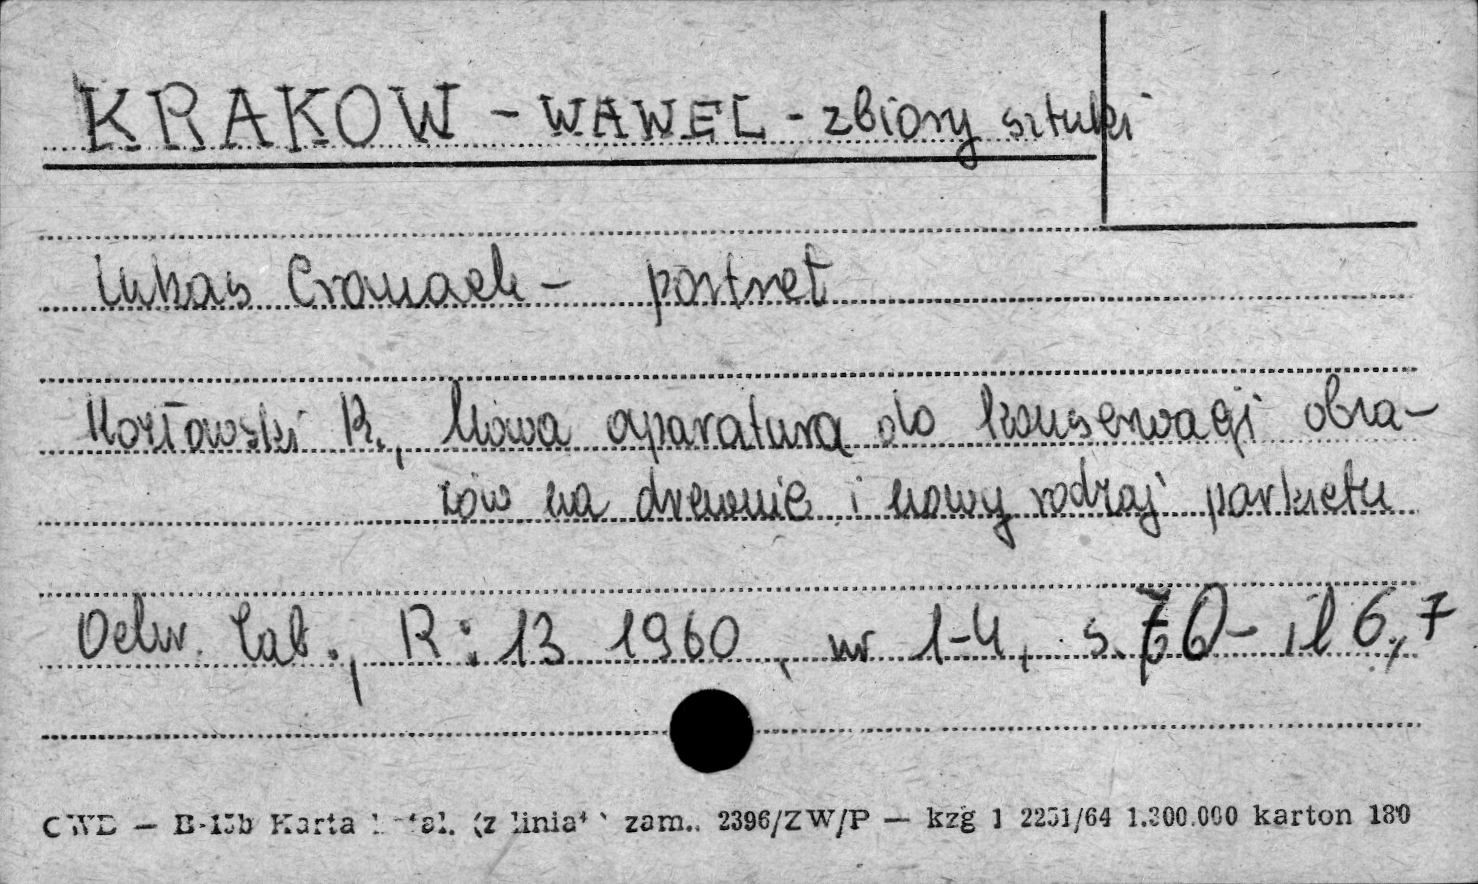 KRAKOW - WAWEL - zbiory sztuki
Lukas Cranach - portret
Kozłowski R., Nowa aparatura do konserwacji obra-
zów na drewnie i nowy rodzaj parkietu
Ochr. Zab., R: 13 1960, nr 1-4, s. 70- il 6, 7
CWD — B-15b Karta katal. (z linia) zam. 2396/ZW/P — kzg 1 2251/64 1.300.000 karton 180